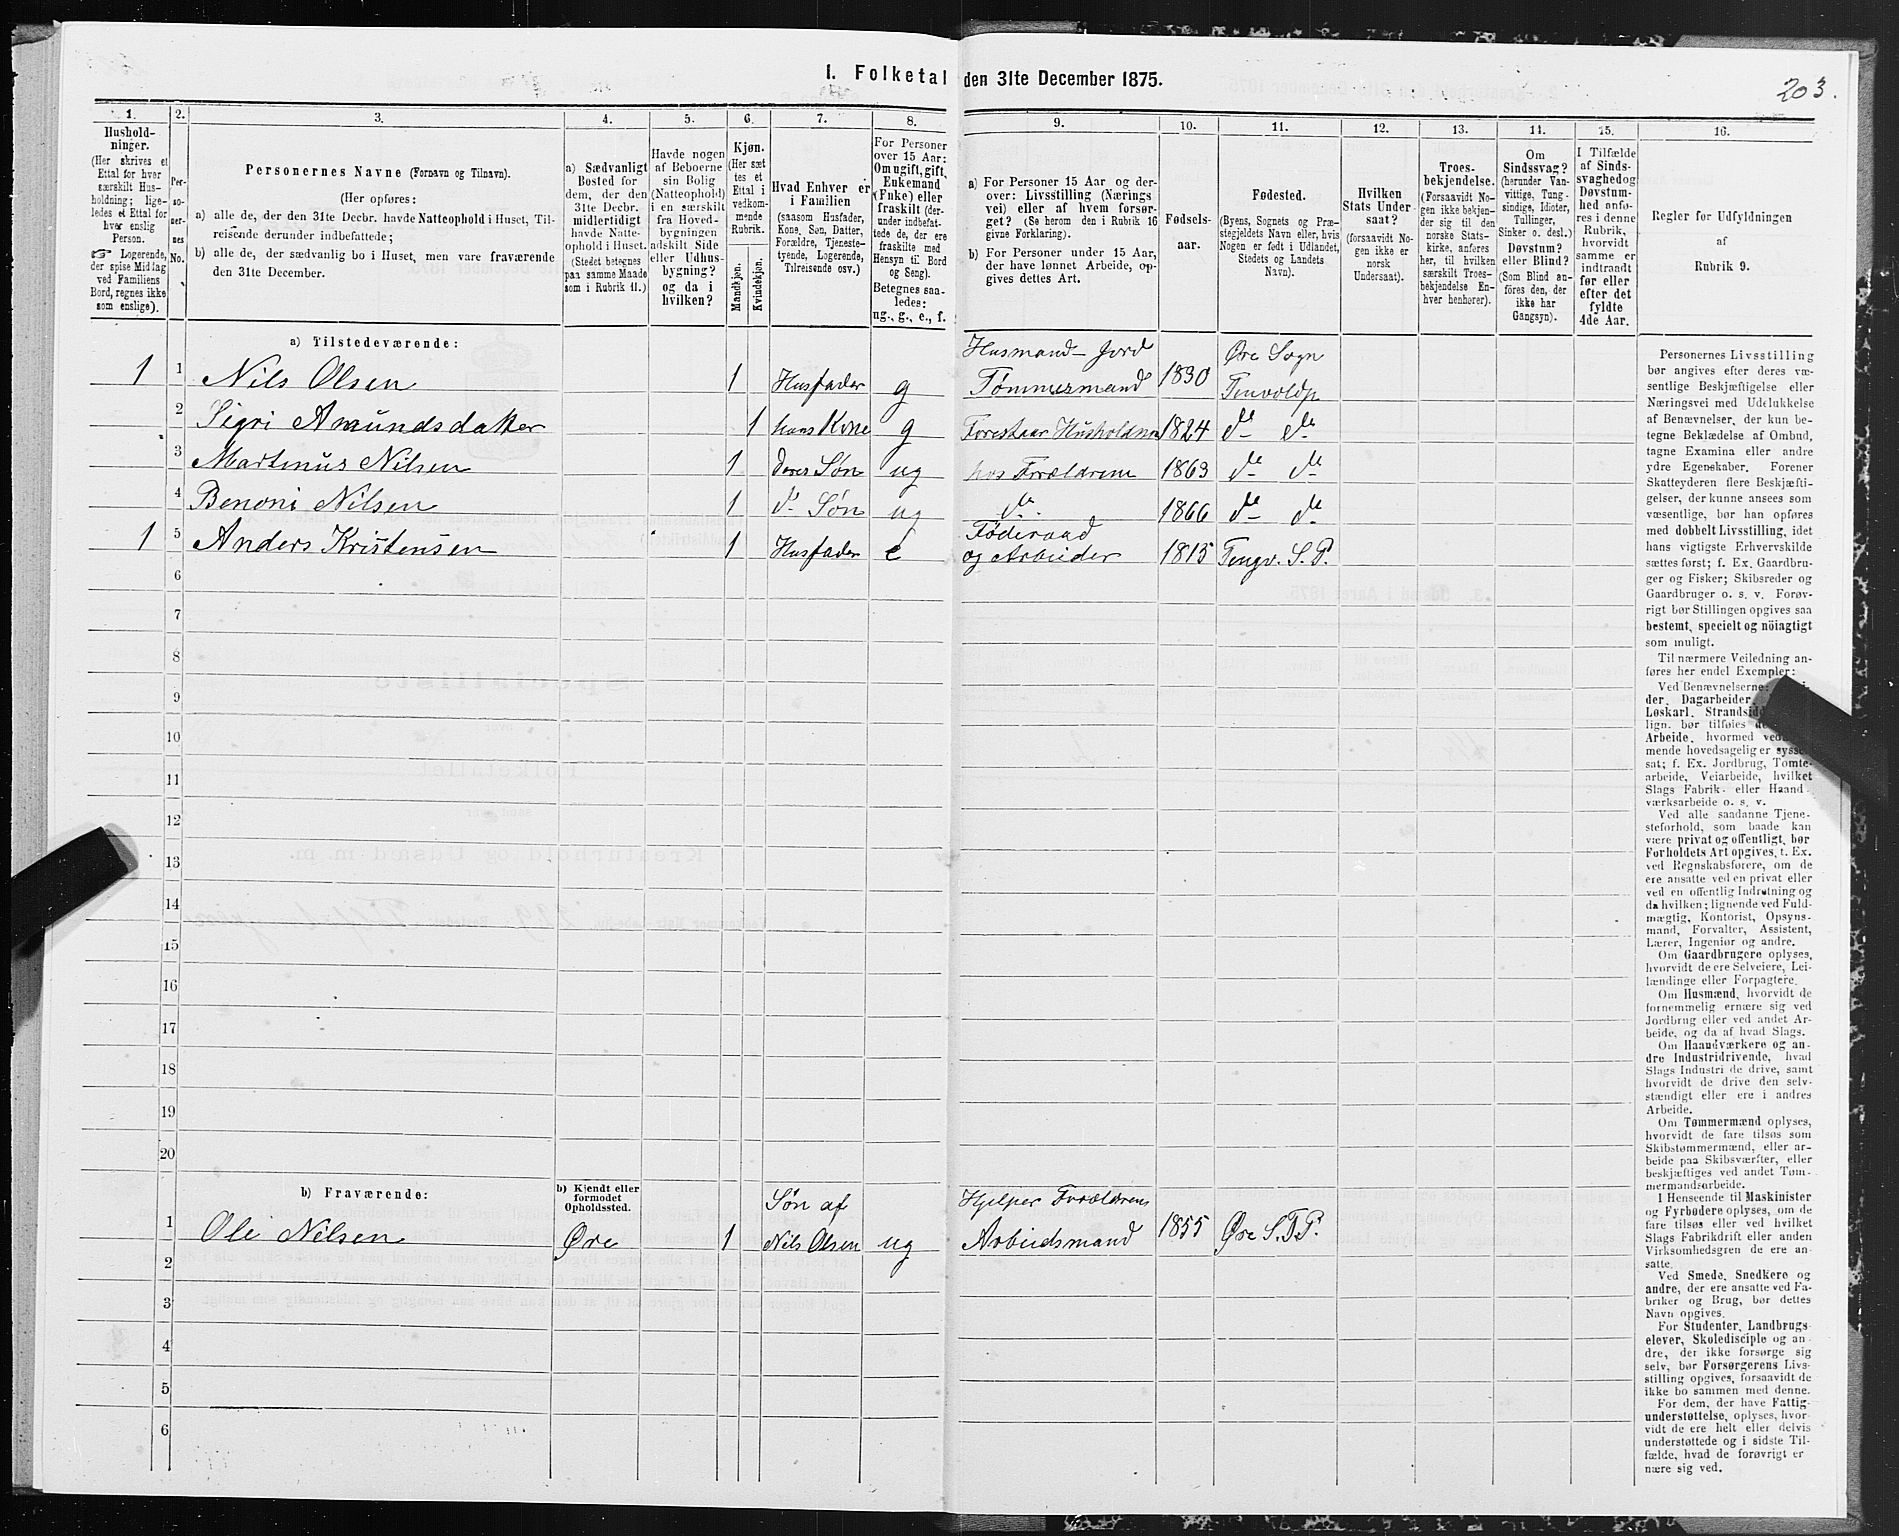 I. Folketal den 31te December 1875.
203.
1.
2.
3.
4.
5.
6.
7.
8.
9.
10.
11.
12.
13.
14.
15.
16.
Hushold-
ninger.
(Her skrives et
Ettal for hver
særskilt Hus-
holdning; lige-
ledes et Ettal for
hver enslig
Person.
☞ Logerende,
der spise Middag
ved Familiens
Bord, regnes ikke
som enslige).
Per-
so-
ner-
nes
No.
Personernes Navne (Fornavn og Tilnavn).
(Her opføres:
a) alle de, der den 31te Decbr. havde Natteophold i Huset, Til-
reisende derunder indbefattede;
b) alle de, der sædvanlig bo i Huset, men vare fraværende
den 31te December.
a) Sædvanligt
Bosted for
dem, der den
31te Decbr.
midlertidigt
havde Natte-
ophold i Huset.
(Stedet betegnes
paa samme Maade
som i Rubrik 11.)
Havde nogen
af Beboerne
sin Bolig
(Natteophold)
i en særskilt
fra Hoved-
bygningen
adskilt Side
eller Udhus-
bygning?
og da i
hvilken?
Kjøn.
(Her sæt
tes et
Ettal i
vedkom-
mende
Rubrik.
Mandkjøn.
Kvindekjøn.
Hvad Enhver er
i Familien
(saasom Husfader,
Kone, Søn, Datter,
Forældre, Tjeneste-
tyende, Logerende,
Tilreisende osv.)
For Personer
over 15 Aar:
Om ugift, gift,
Enkemand
(Enke) eller
fraskilt (der-
under indbefat-
tede de, der ere
fraskilte med
Hensyn til Bord
og Seng).
Betegnes saa-
ledes:
ug., g., e., f.
a) For Personer 15 Aar og der-
over: Livsstilling (Nærings
vei) eller af hvem forsør-
get? (Se herom den i Rubrik 16
givne Forklaring).
b) For Personer under 15 Aar,
der have lønnet Arbeide, op-
gives dettes Art.
Fødsels-
aar.
Fødested.
(Byens, Sognets og Præ-
stegjeldets Navn eller, hvis
Nogen er født i Udlandet,
Stedets og Landets
Navn).
Hvilken
Stats Under
saat?
(forsaavidt No-
gen ikke er
norsk
Undersaat).
Troes-
bekjendelse.
(Forsaavidt No-
gen ikke bekjen-
der sig til den
norske Stats-
kirke, anføres
her, til hvilken
særskilt Troes-
bekjendelse En-
hver henhører).
Om
Sindssvag?
(herunder Van-
vittige, Tung-
sindige, Idioter,
Tullinger,
Sinker o. desl.)
Døvstum?
eller Blind?
(Som Blind an-
føres den, der
ikke har
Gangsyn).
I Tilfælde
af Sinds-
svaghed og
Døvstum-
hed anfø-
res i denne
Rubrik,
hvorvidt
samme er
indtraadt
før eller
efter det
fyldte
4de Aar.
Regler for Udfyldningen
af
Rubrik 9.
a) Tilstedeværende:
1 1 Nils Olsen 1 Husfader g Husmand- Jord Tømmermand 1830 Øre Sogn
2 Sigri Amundsdatter 1 hans Kone g Forestaar 1824 do do
3 Martinus Nilsen 1 deres Søn ug hos Forældrene 1863 do do
4 Benoni Nilsen 1 do Søn ug do 1866 do do
1 5 Anders Kristensen 1 Husfader e Føderaad og Arbeider 1815 Tingv. S. P.
6
7
8
9
10
11
12
13
14
15
16
17
18
19
20
b) Fraværende:
b) Kjendt eller
formodet
Opholdssted.
1 Ole Nilsen Øre 1 Søn af Nils Olsen ug Hjelper Forældrene Arbeidsmand 1855 Øre S.
2
3
4
5
6
Personernes Livsstilling
bør angives efter deres væ-
sentlige Beskjæftigelse eller
Næringsvei med Udelukkelse
af Benævnelser, der kun be-
tegne Beklædelse af Ombud,
tagne Examina eller andre
ydre Egenskaber. Forener
Skatteyderen flere Beskjæfti-
gelser, der kunne ansees som
væsentlige, bør han opføres
med dobbelt Livsstilling, idet
hans vigtigste Erhvervskilde
sættes først; f. Ex. Gaardbru-
ger og Fisker; Skibsreder og
Gaardbruger o. s. v. Forøv-
rigt bør Stillingen opgives saa
bestemt, specielt og nöiagtigt
som muligt.
Til nærmere Veiledning an-
føres her endel Exempler:
Ved Benævnelserne:
der, Dagarbeider,
Løskarl, Strandsid
lign. bør tilføies
Arbeide, hvormed ved
mende hovedsagelig er sysse
sat; f. Ex. Jordbrug, Tomte-
arbeide, Veiarbeide, hvilket
Slags Fabrik- eller Haand-
værksarbeide o. s. v.
Ved alle saadanne Tjene-
steforhold, som baade kan
være privat og offentligt, bør
Forholdets Art opgives, t. Ex.
ved Regnskabsførere, om de
ere ansatte ved en privat eller
ved en offentlig Indretning og
da hvilken; lignende ved Fuld-
mægtig, Kontorist, Opsyns-
mand, Forvalter, Assistent,
Lærer, Ingeniør og andre.
Om Gaardbrugere oplyses,
hvorvidt de ere Selveiere, Lei-
lændinge eller Forpagtere.
Om Husmænd, hvorvidt de
fornemmelig ernære sig ved
Jordbrug eller ved andet Ar-
beide, og da af hvad Slags.
Om Haandværkere og an-
dre Industridrivende, hvad
Slags Industri de drive, samt
hvorvidt de drive den selv-
stændigt eller ere i andres
Arbeide.
Om Tømmermænd oplyses,
hvorvidt de fare tilsøs som
Skibstømmermænd, eller ar-
beide paa Skibsværfter, eller
beskjæftiges ved andet Tøm-
mermandsarbeide.
I Henseende til Maskinister
og Fyrbødere oplyses, om de
fare tilsøs eller ved hvilket
Slags Fabrikdrift eller anden
Virksomhedsgren de ere an-
satte.
Ved Smede, Snedkere og
andre, der ere ansatte ved Fa-
briker og Brug, bør dettes
Navn opgives.
For Studenter, Landbrugs-
elever, Skoledisciple og an-
dre, der ikke forsørge sig
selv, bør Forsørgerens Livs-
stilling opgives, forsaavidt de
ikke bo sammen med denne.
For dem, der have Fattig-
understøttelse, oplyses, hvor-
vidt de ere helt eller delvis
understøttede og i sidste Til-
fælde, hvad de forøvrigt er
nære sig ved.